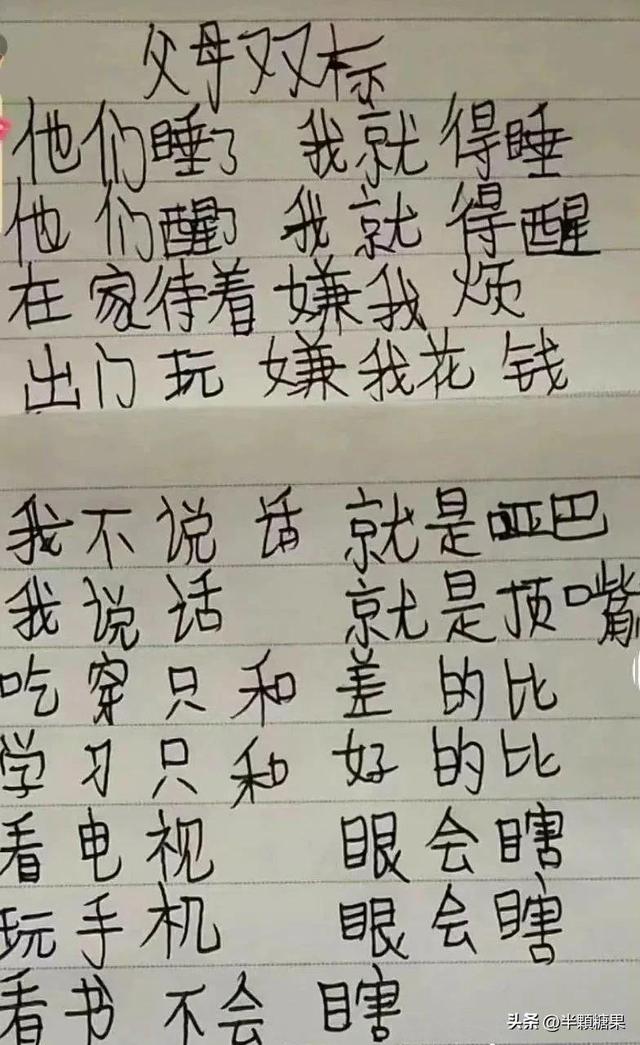 父母双标
他们睡了 我就得睡
他们醒了 我就得醒
在家待着嫌我烦
出门玩 嫌我花钱
我不说话 就是哑巴
我说话 就是顶嘴
吃穿只和差的比
学习只和好的比
看电视 眼会瞎
玩手机 眼会瞎
看书不会瞎
头条 @半颗糖果